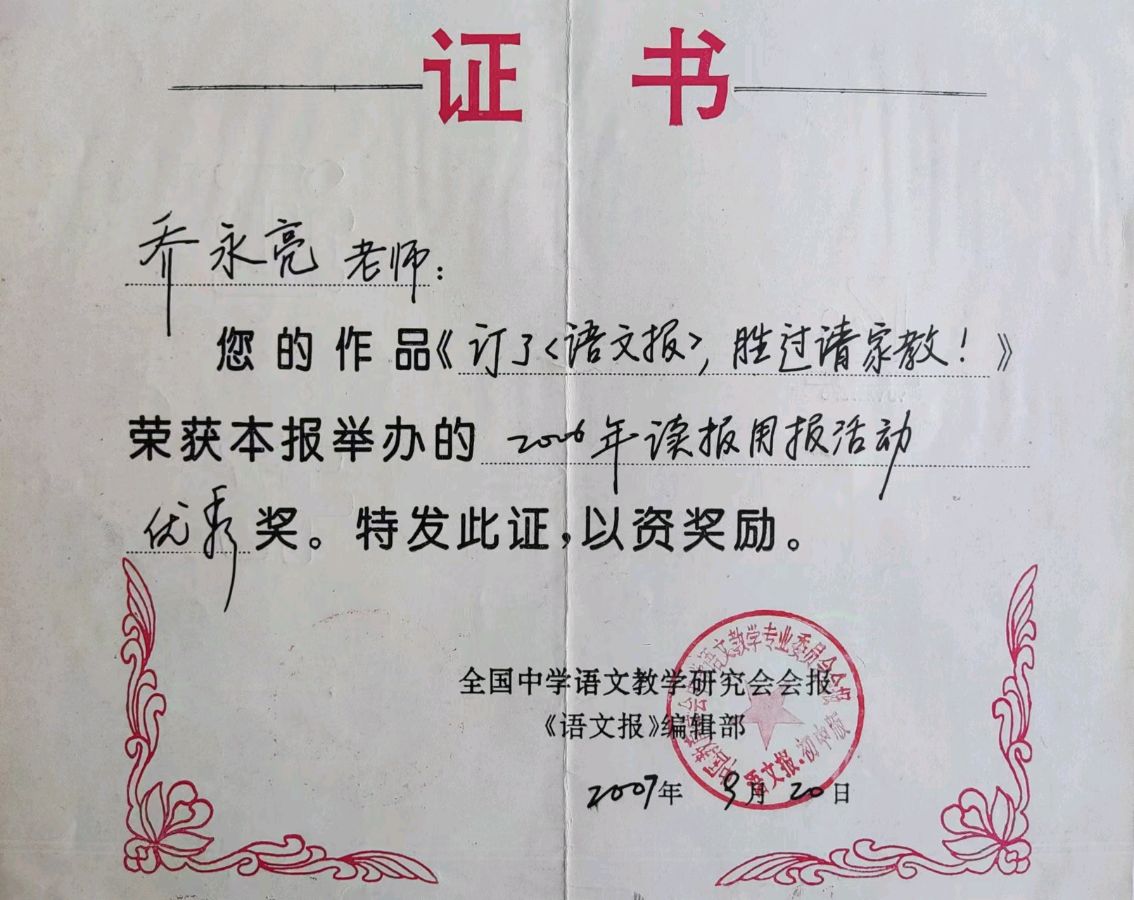 证书
乔永亮 老师：
您的作品《订了<语文报>，胜过请家教！》
荣获本报举办的 2006年读报用报活动
优秀奖。特发此证，以资奖励。
全国中学语文教学研究会会报
《语文报》编辑部
2007年 9月 20日
语文教学专业委员会会报
语文报·初中版